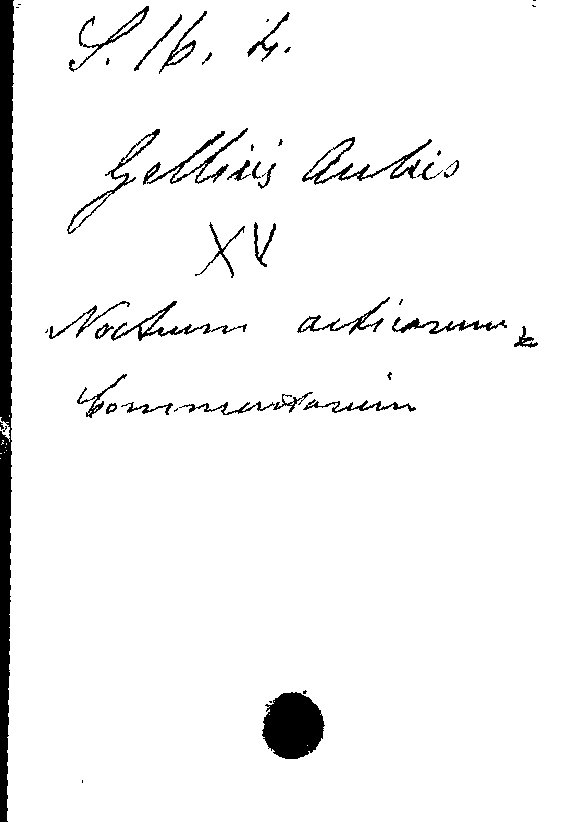 S. 16. 4.
Gellius Aulus
XV
Noctium acticarum
Commentarium